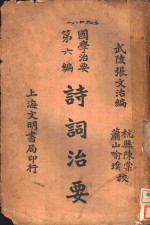 武陵張文治編
杭縣陳棠
蕭山喻璞 校
國學治要
第六編
詩詞治要
上海文明書局印行